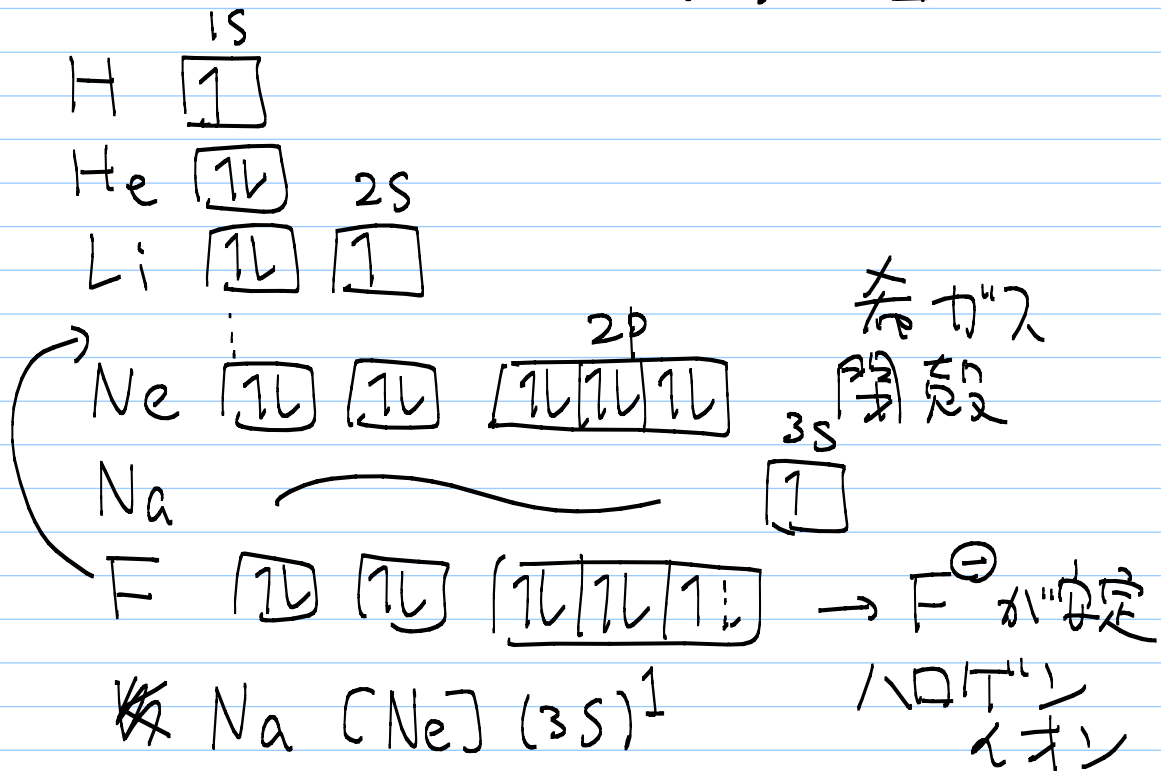 1S
H 1
He 1L 2S
Li 1L 1
2P 希ガス
Ne 1L 1L 1L 1L 1L 閉殻
3S
Na 1
F 1L 1L 1L 1L 1 → F⊖ が安定
Na [Ne] (3S)¹ ハロゲン
イオン